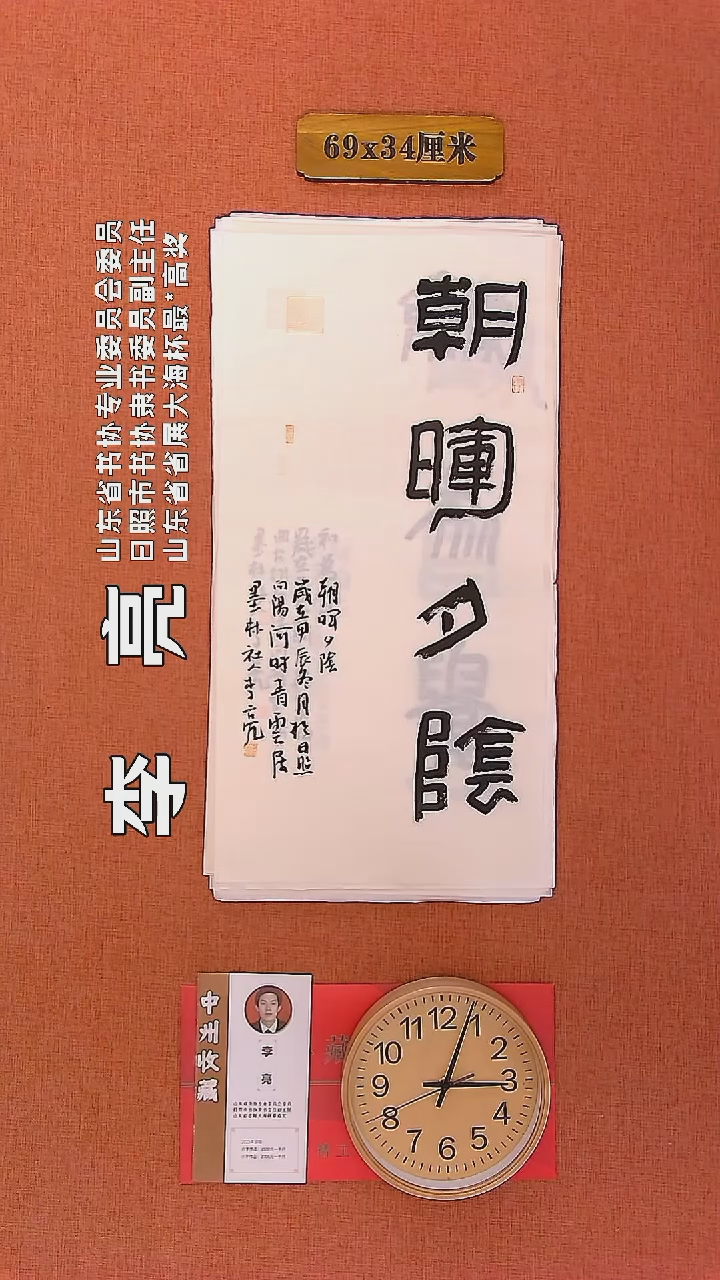 69x34厘米
朝暉夕陰
朝暉夕陰
歲在甲辰冬月於日照
向陽河畔青雲居
墨林社人李亮
山东省书协专业委员会委员
日照市书协隶书委员副主任
山东省省展大海杯最*高奖
李 亮
中洲收藏
李
亮
藏
12
1
2
3
4
5
6
7
8
9
10
11